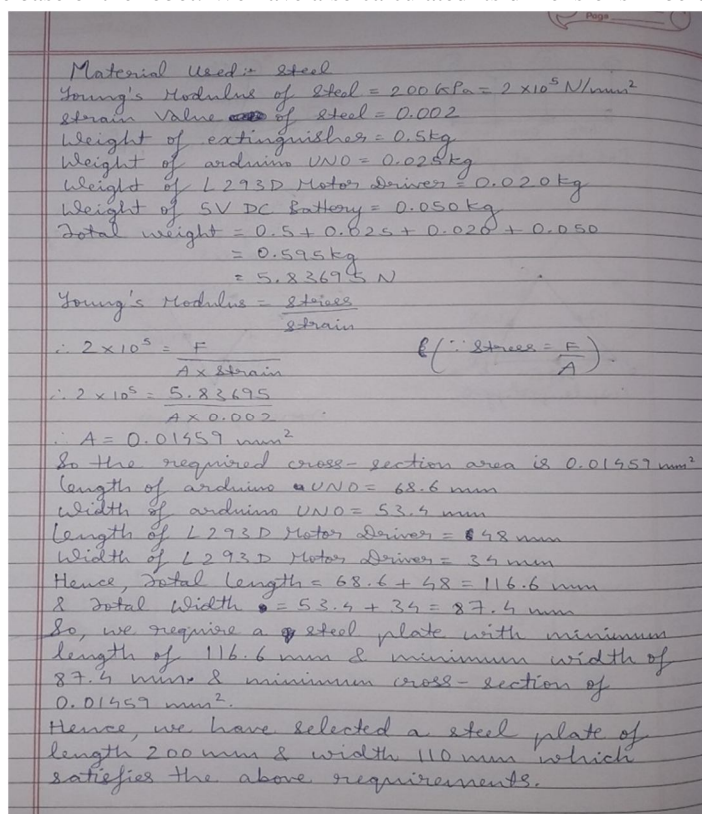 Page
Material Used :- Steel
Young's Modulus of Steel = 200 GPa = 2 x 10⁵ N/mm²
Strain Value of Steel = 0.002
Weight of extinguisher = 0.5kg
Weight of arduino UNO = 0.025kg
Weight of L293D Motor Driver = 0.020kg
Weight of 5V DC Battery = 0.050kg
Total weight = 0.5 + 0.025 + 0.020 + 0.050
= 0.595kg
= 5.83695 N
Young's Modulus = Stress
Strain
∴ 2 x 10⁵ = F
A x Strain
(∵ Stress = F
A)
∴ 2 x 10⁵ = 5.83695
A x 0.002
∴ A = 0.01459 mm²
So the required cross-section area is 0.01459 mm²
length of arduino UNO = 68.6 mm
Width of arduino UNO = 53.4 mm
Length of L293D Motor Driver = 48 mm
Width of L293D Motor Driver = 34 mm
Hence, Total length = 68.6 + 48 = 116.6 mm
& Total Width = 53.4 + 34 = 87.4 mm
So, we require a steel plate with minimum
length of 116.6 mm & minimum width of
87.4 mm & minimum cross-section of
0.01459 mm².
Hence, we have selected a steel plate of
length 200 mm & width 110 mm which
satisfies the above requirements.